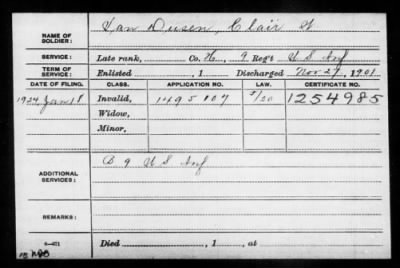 NAME OF SOLDIER: Van Dusen, Clair W
SERVICE: Late rank, Co. H, 9 Reg't U S Inf
TERM OF SERVICE: Enlisted , 1 Discharged Nov. 27, 1901
DATE OF FILING. CLASS. APPLICATION NO. LAW. CERTIFICATE NO.
1924 Invalid, 1495107 1254985
Widow,
Minor,
ADDITIONAL SERVICES: B 9 U S Inf
REMARKS:
Died , 1 , at